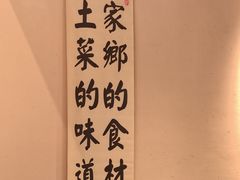 家鄉的食材
土菜的味道